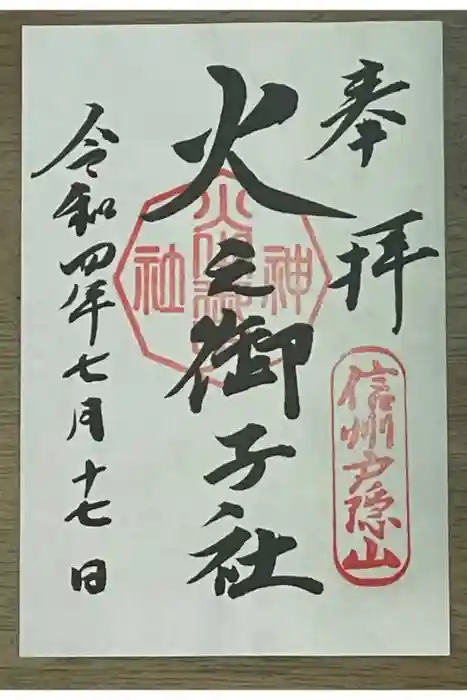 奉拝
信州戸隠山
火之御子社
神社
令和四年七月十七日